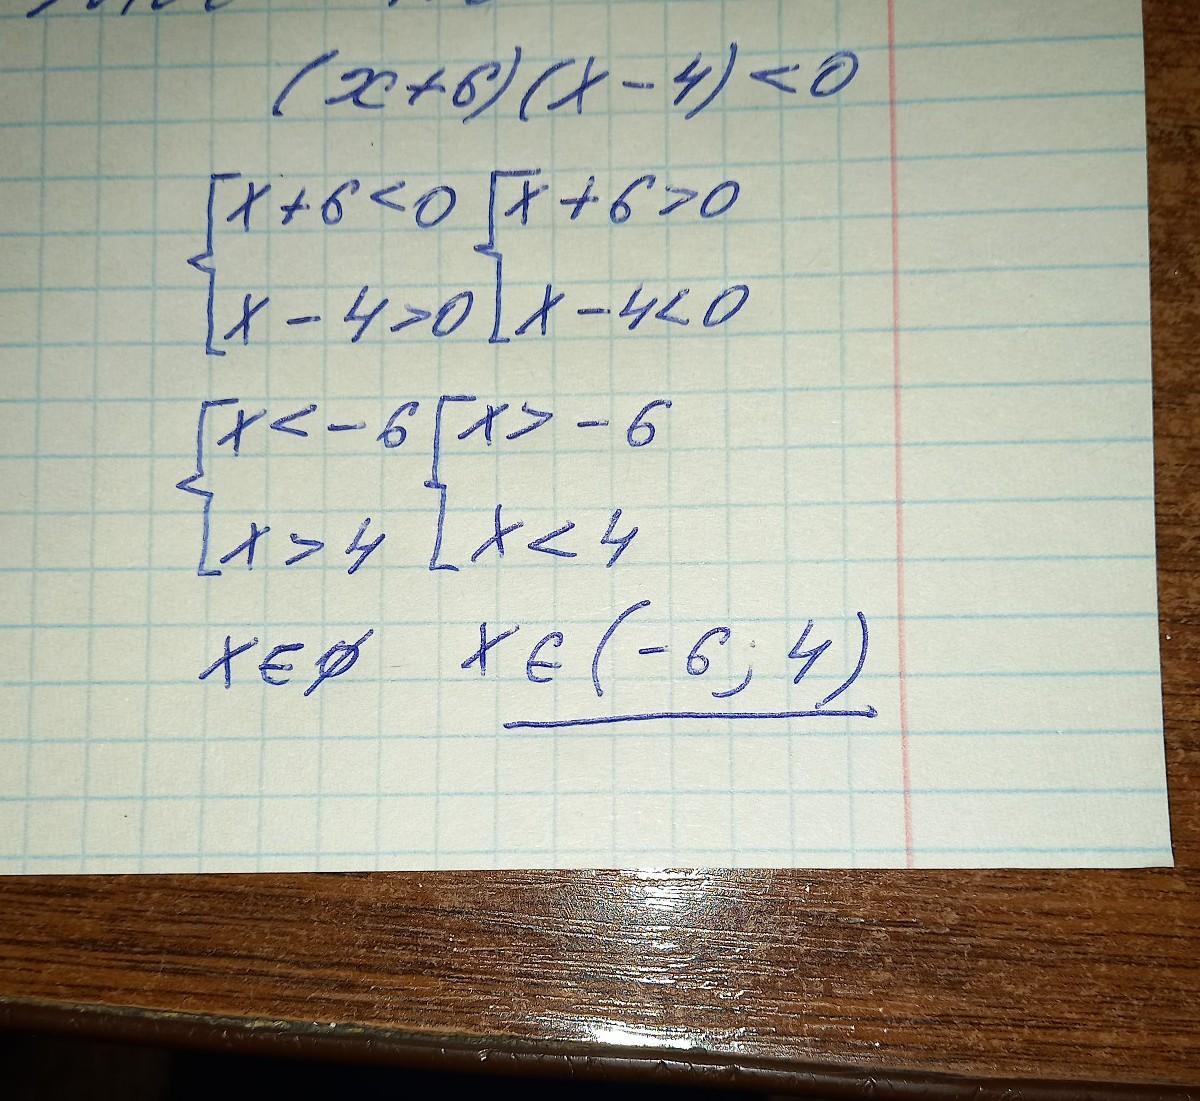 (x+6)(x-4)<0
x+6<0 x+6>0
x-4>0 x-4<0
x<-6 x>-6
x>4 x<4
x∈∅ x∈(-6;4)